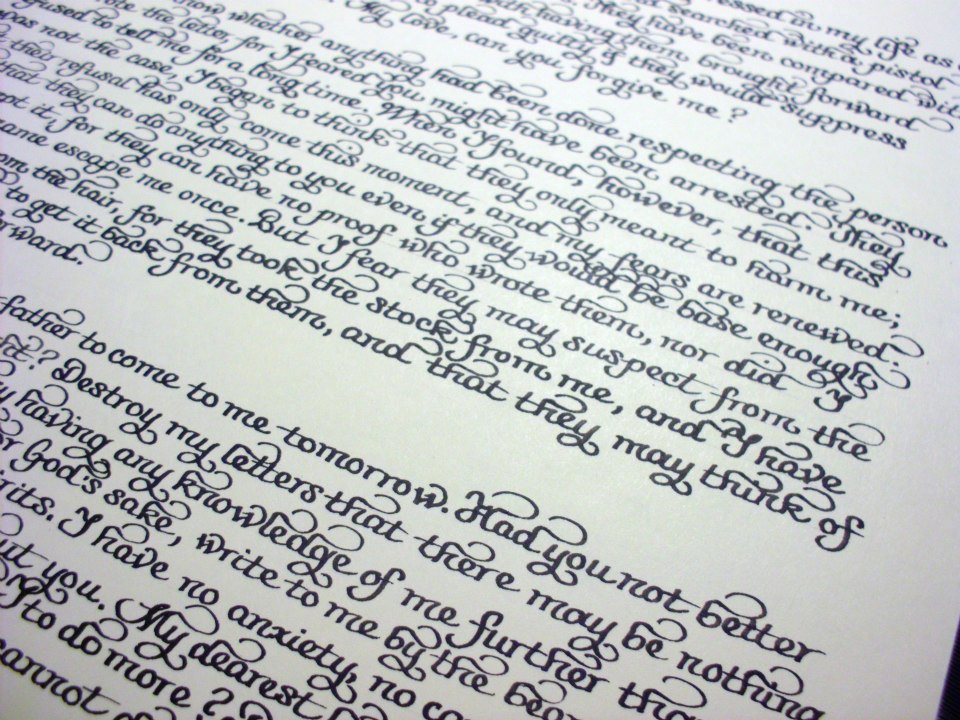 in my life as a
searched with a pistol
They have been compared wit
with having them brought forward
to plead guilty if they would suppress
My love, can you forgive me?
now whether anything had been done respecting the person
rote the letter, for I feared you might have been arrested. They
fused to tell me for a long time. When I found, however, that this
was not the case, I began to think that they only meant to harm me;
this refusal has only come this moment, and my fears are renewed.
that they can do anything to you even if they would be base enough
pt it, for they can have no proof who wrote them, nor did I
ame escape me once. But I fear they may suspect from the
om the hair, for they took the stock from me, and I have
to get it back from them, and that they may think of
rward.
father to come to me tomorrow. Had you not better
? Destroy my letters that there may be nothing
having any knowledge of me further tha
God's sake, write to me by the bear
rits. I have no anxiety, no
ut you. My dearest
I to do more?
cannot